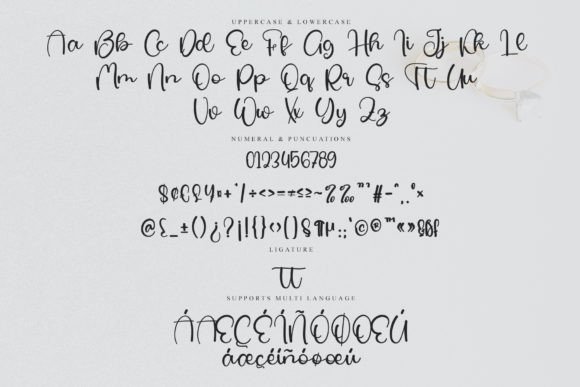 UPPERCASE & LOWERCASE
Aa Bb Cc Dd Ee Ff Gg Hh Ii Jj Kk Ll
Mm Nn Oo Pp Qq Rr Ss Tt Uu
Vv Ww Xx Yy Zz
NUMERAL & PUNCUATIONS
0123456789
$¢€£¥¤+*/÷<>=≠≤≥~
@&_±()¿?¡!{}‹›()§¶µ:;'©®™«»
LIGATURE
tt
SUPPORTS MULTI LANGUAGE
ÁÆÇÉÍÑÓØŒÚ
áæçéíñóøœú